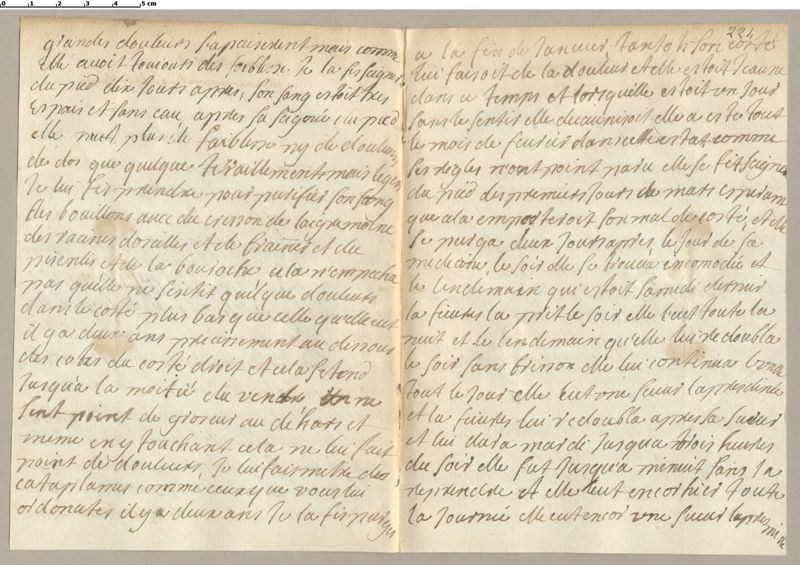 0 1 2 3 4 5 cm
grandes douleurs sapaiserent mais comme
elle avoit toujours des foiblesse Je la fis saigner
du pied dix Jours apres, son sang estoit tres
Espais et sans eau, apres sa sagnée du pied
elle neut plus de faiblesse ny de douleurs
de dos que quelque tiraillement mais legers
Je lui fis prendre pour purifier son sang
des bouillons avec du cresson de laigremoine
des racines dozeilles et de fraisiers et du
pisenlis et de la bourache cela n'empecha
pas quelle ne sentit quelque douleurs
dans le costé plus bas que celle quelle eut
il y a deux ans precisement au dessous
des cotes du costé droit et cela s'etend
Jusqu'a la moitié du ventre on ne
sent point de grosseur au dehors et
meme en y touchant cela ne lui fait
point de douleurs, Je lui fais metre des
cataplames comme ceux que vous lui
ordonates il y a deux ans Je la fis purger
224
a la fin de Janvier tantost son costé
lui faisoit de la douleur et elle estoit Jeaune
dans ce temps et lorsquelle estoit un Jour
sans le sentir elle deaunisoit elle a esté tout
le mois de feurier dans cette estat comme
ses regles n'ont point paru elle se fit saigner
du pied des premiers Jours de mars esperant
que cela emporteroit son mal de costé, et elle
se purga deux Jours apres, le Jour de sa
medecine, le soir elle se trouva incomodée et
le lendemain qui estoit samedi dernier
la fieures la prit le soir elle leut toute la
nuit et le lendemain qu'elle lui redoubla
le soir sans frisson elle lui continua
tout le Jour elle eut une sueur lapresdinée
et la fieures lui redoubla apres sa sueur
et lui dura mardi Jusqua trois heures
du soir elle fut Jusqu'a minuit sans la
reprendre et elle leut encor hier toute
la Journée elle eut encor une sueur lapres